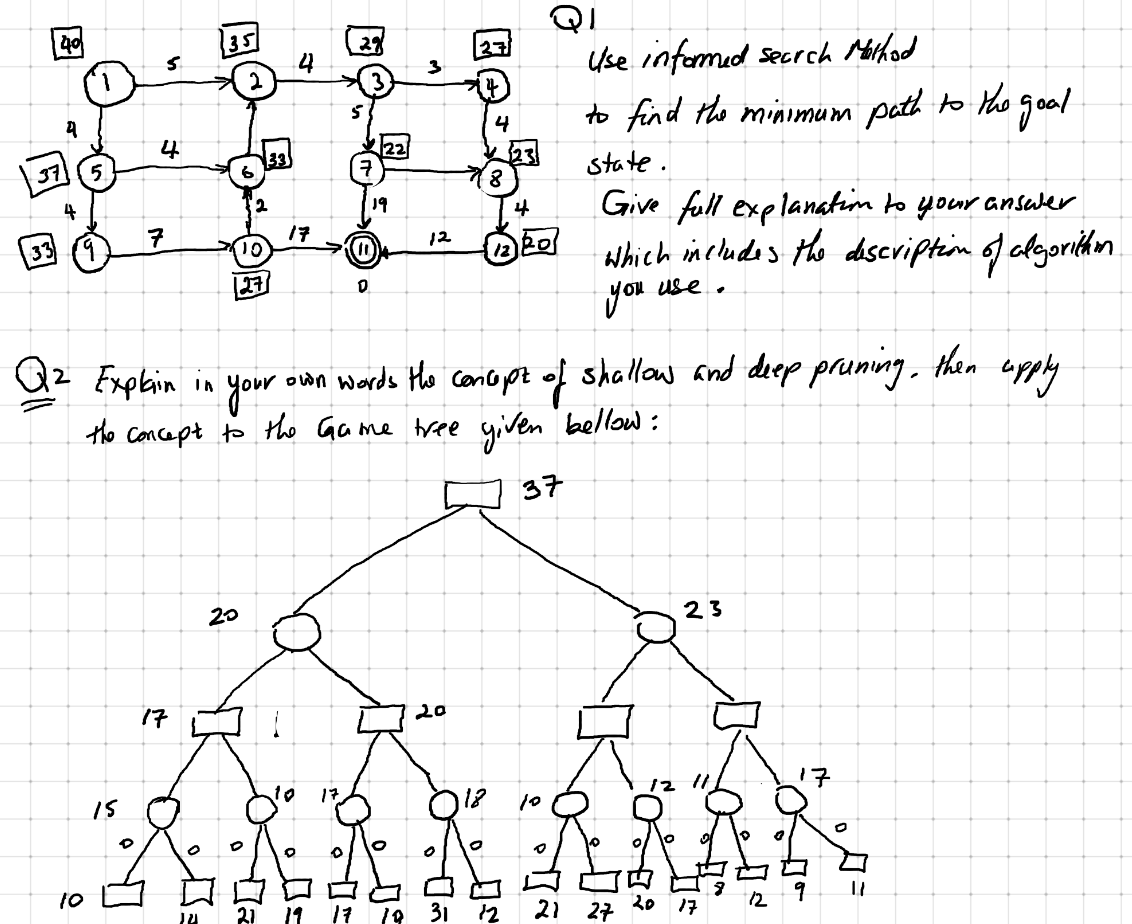 Q1
40 35 29 27
5 4 3
1 2 3 4
4 5 4
37 5 4 6 33 7 22 8 23
4 2 19 4
33 9 7 10 17 11 12 12 20
27 0
Use informed search Method
to find the minimum path to the goal
state.
Give full explanation to your answer
which includes the description of algorithm
you use.
Q2 Explain in your own words the concept of shallow and deep pruning. then apply
the concept to the Game tree given bellow:
37
20 23
17 20
15 10 17 18 10 12 11 17
0 0 0 0 0 0 0 0 0 0 0 0 0 0 0 0
10 14 21 19 17 18 31 12 21 27 20 17 8 12 9 11